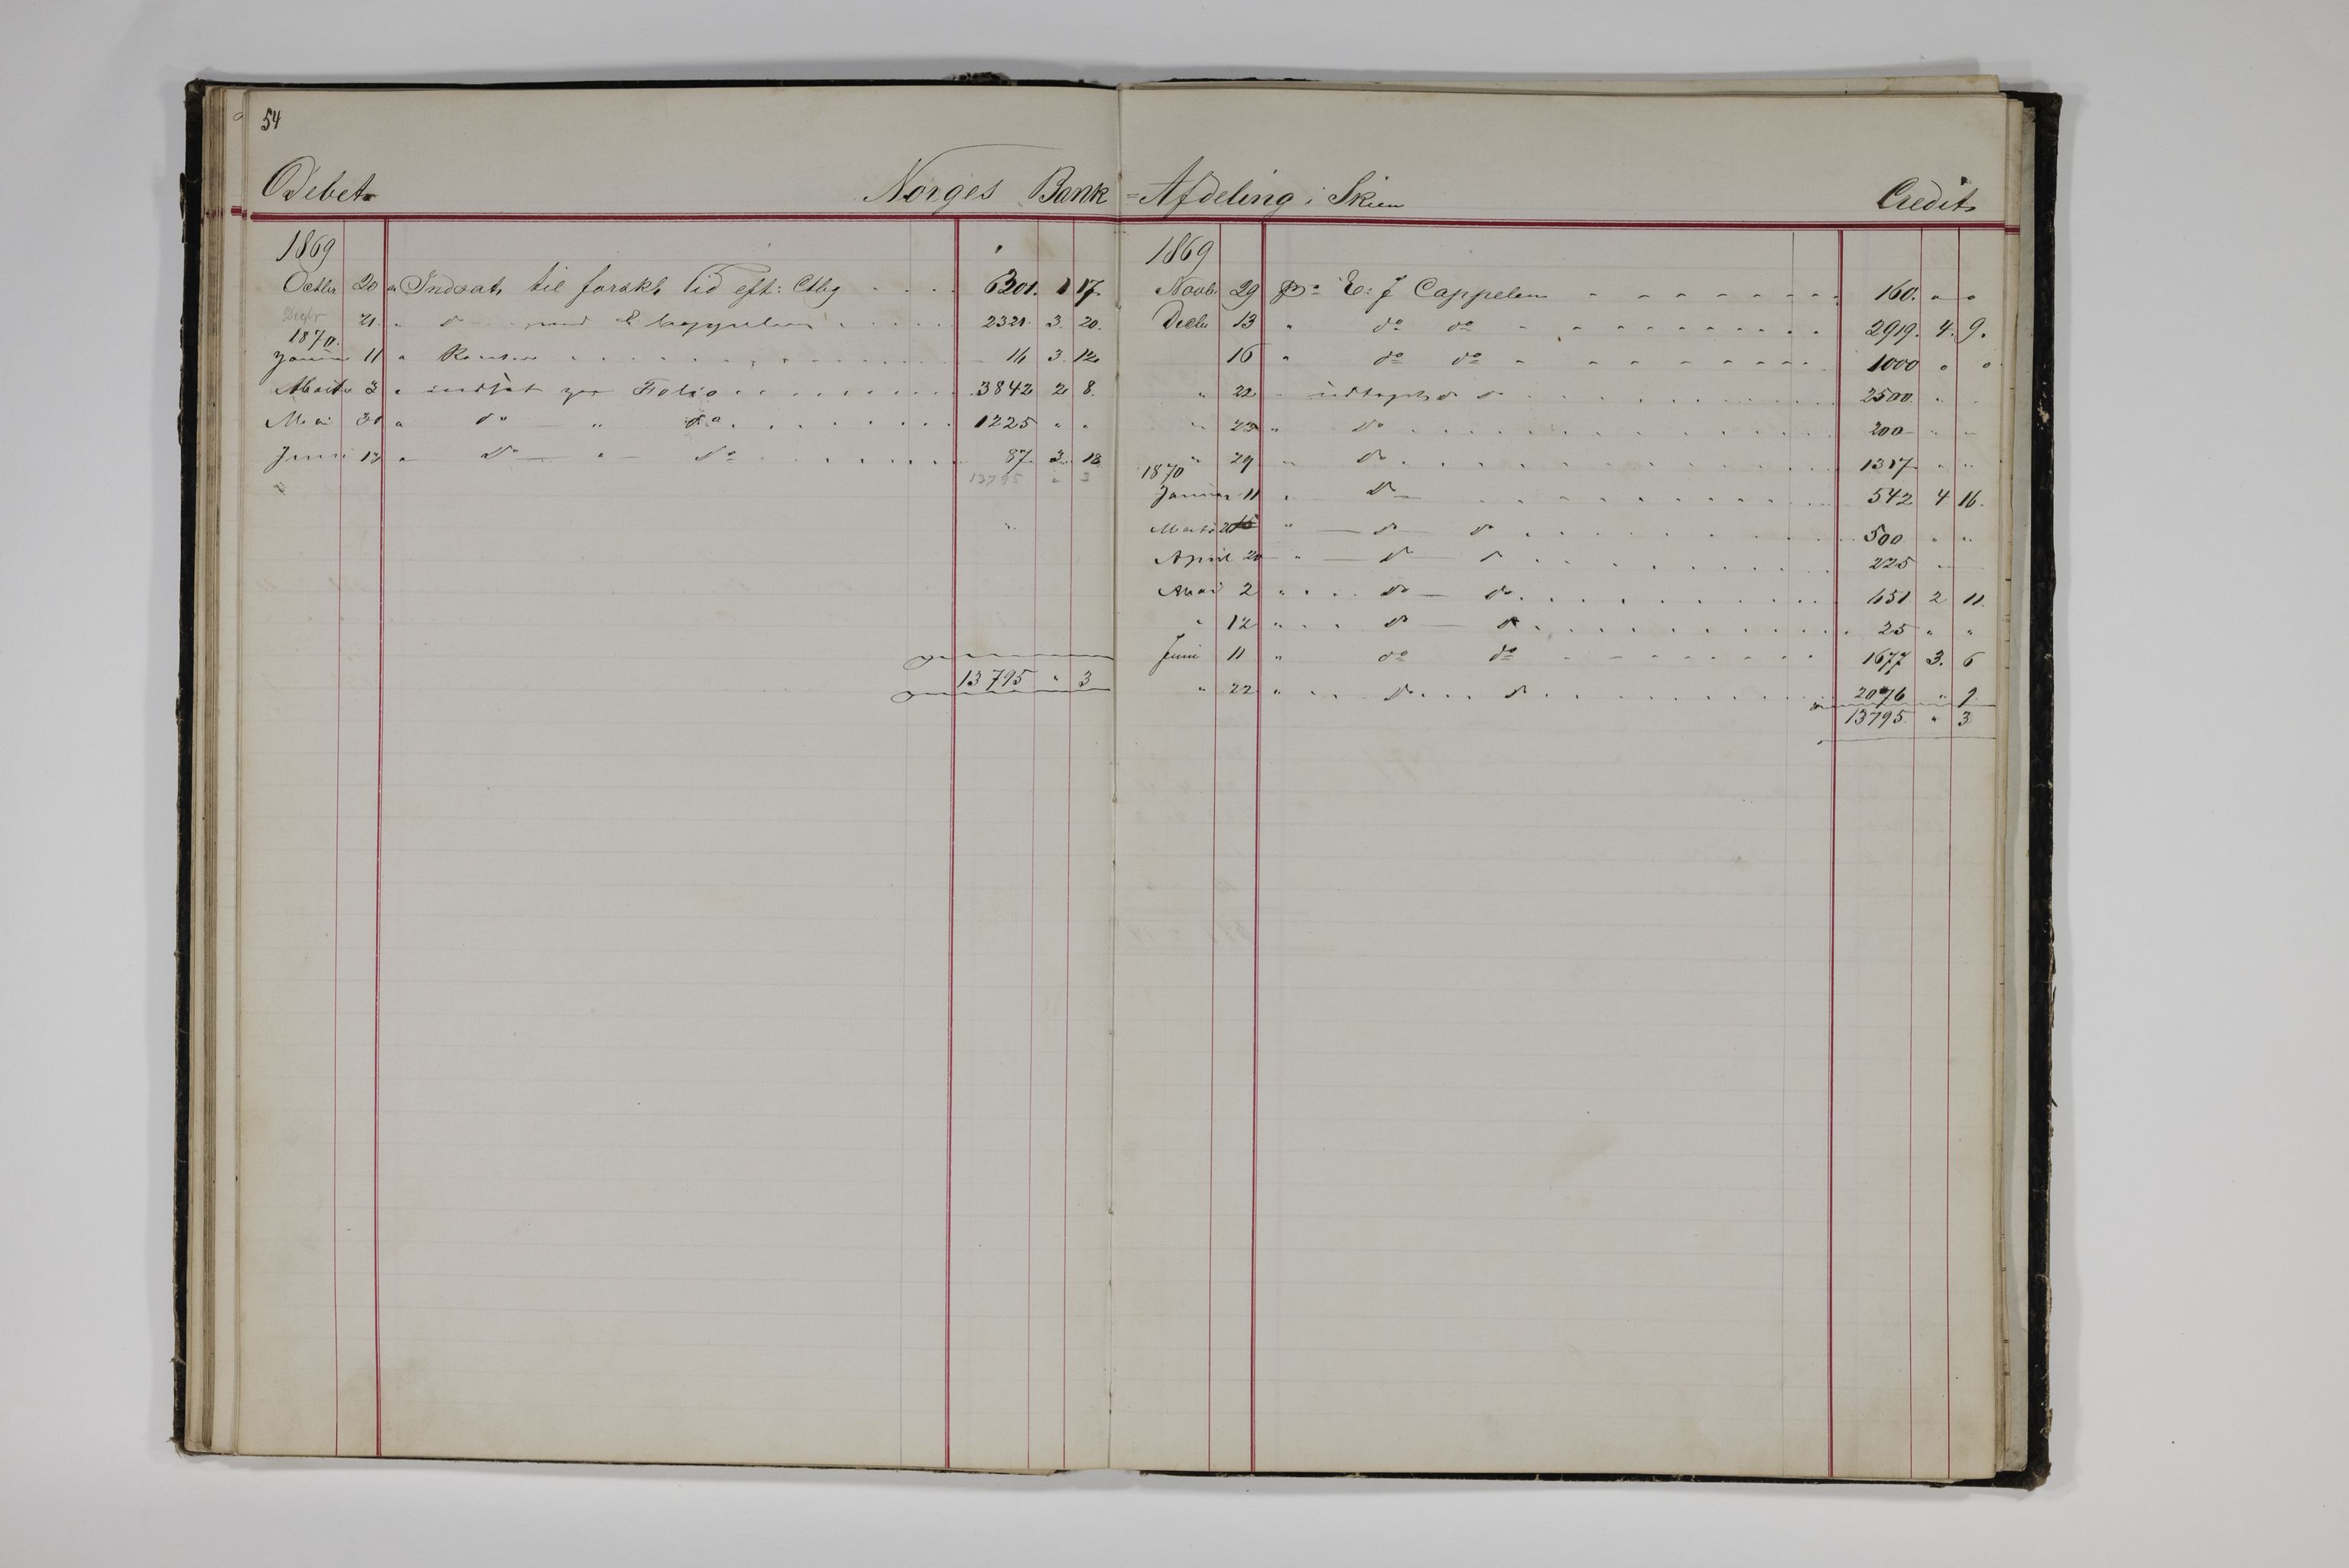 54
Debet Norges Bank = Afdeling i Skien Credit
1869
Octbr 20 " Indsat til forskl Tid eft: Ctbg 6301. 1 17
Decbr 21. " do E Cappelen 2321. 3. 20.
1870.
Januar 11 " Renter 16 3 12
Marts 3 " indsat pr Folio 3842 2 8.
Mai 31 " do " do 1225 " "
Juni 13 " Do " Do 87 3 18
13795 " 3
13795 " 3
1869
Novbr 29 pr E: J Cappelen 160. " "
Decbr 13 " do do 2919. 4. 9.
16 " do do 1000 " "
" 22 " udtaget do 2500. " "
" 23 " Do 200 " "
" 29 " Do 1317 " "
1870
Januar 11 " Do 542 4 16.
Marts " do do 500 " "
April 20 " do do 225
Mai 2 " do do 651 2 11.
" 12 " do do 25 " "
Juni 11 " do do 1677 3. 6
" 22 " do do 2076 " 9
13795. " 3